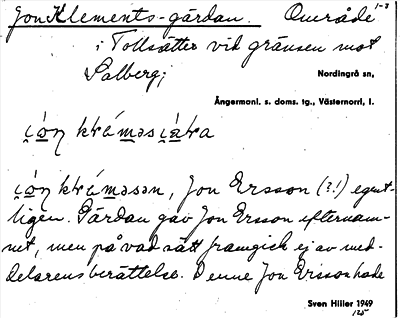 Jon Klements-gärdan. Område 1-2
i Tollsätter vid gränsen mot
Salberg;
Nordingrå sn,
Ångermanl. s. doms. tg., Västernorrl, l.
Jon Ersson (?!) egent-
ligen. Gärdan gav Jon Ersson efternam-
net, men på vad sätt framgick ej av med-
delarens berättelse. Denne Jon Ersson hade
Sven Hiller 1949